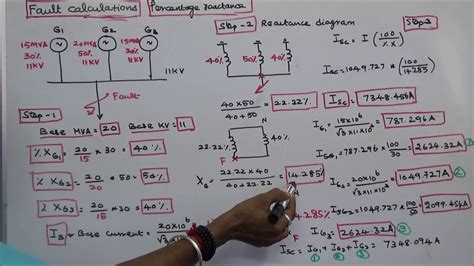 Fault calculations
Percentage reactance
G1
G2
G3
15MVA
30%
11KV
20MVA
50%
11KV
15MVA
30%
11KV
11KV
Fault
Step-1
Base MVA = 20 Base KV = 11
% XG1 = 20/15 × 30 = 40%
% XG2 = 20/20 × 50 = 50%
% XG3 = 20/15 × 30 = 40%
IB = Base current = 20×10⁶
Step-2 Reactance diagram
40%
50%
40%
40×50
40+50
= 22.22%
N
22.22%
40%
F
X = 22.22×40
40+22.22
= 14.285%
14.285%
F
Step-3
ISC = I (100/%X)
ISC = 1049.727 × (100/14.285)
ISC = 7348.456A
IG1 = 15×10⁶/√3×11×10³ = 787.296A
ISG1 = 787.296 × 100/30 = 2624.32A
IG2 = 20×10⁶/√3×11×10³ = 1049.727A
ISG2 = 1049.727 × 100/50 = 2099.454A
IG3 = 2624.32A
ISC = IG1 + IG2 + IG3 = 7348.094A